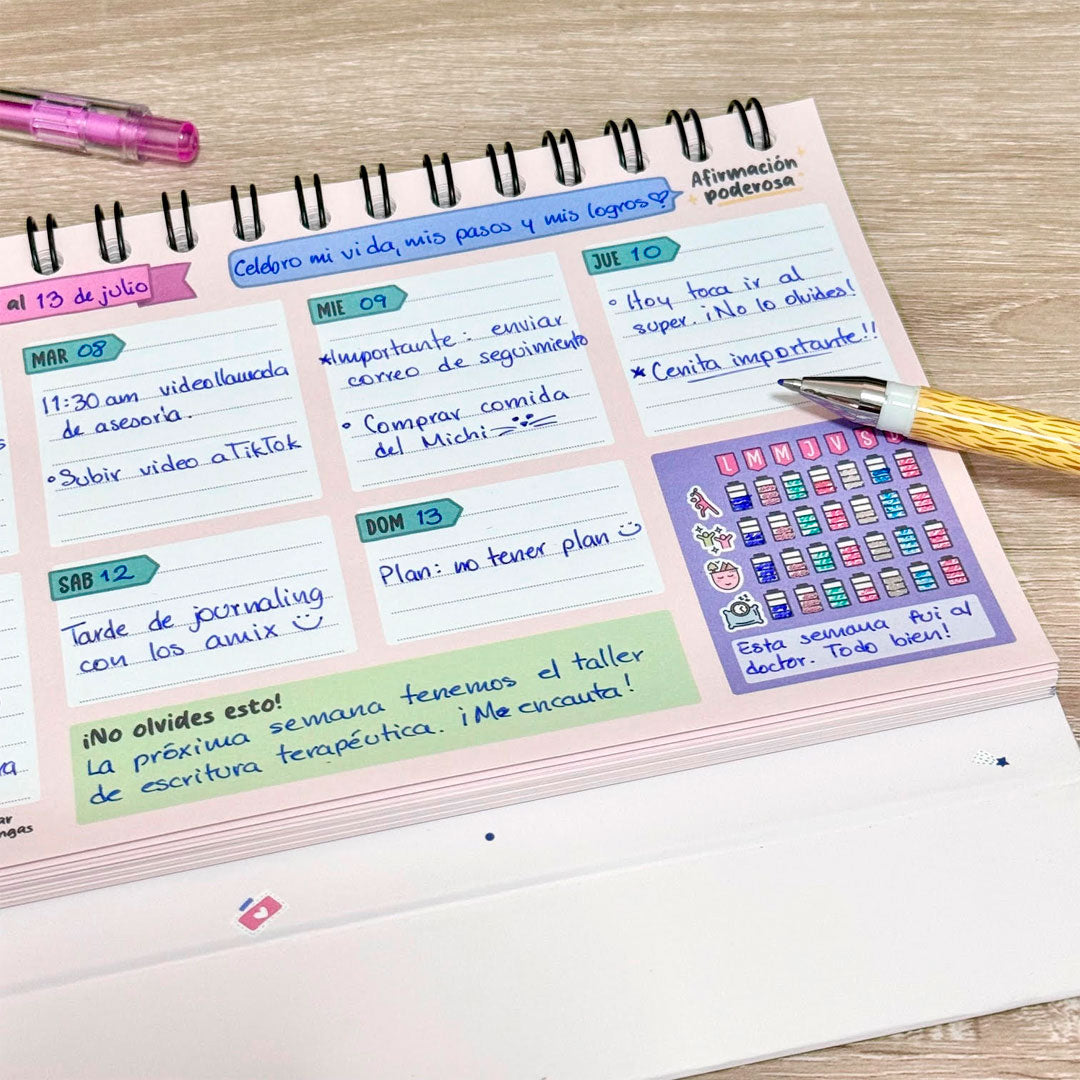 Afirmación
poderosa
Celebro mi vida, mis pasos y mis logros
al 13 de julio
MAR 08
11:30 am videollamada
de asesoría.
Subir video a TikTok
MIE 09
*Importante: enviar
correo de seguimiento
• Comprar comida
del Michi
JUE 10
• Hoy toca ir al
super. ¡No lo olvides!
* Cenita importante!!
SAB 12
Tarde de journaling
con los amix
DOM 13
Plan: no tener plan
L M M J V S D
Esta semana fui al
doctor. Todo bien!
¡No olvides esto!
La próxima semana tenemos el taller
de escritura terapéutica. ¡Me encanta!